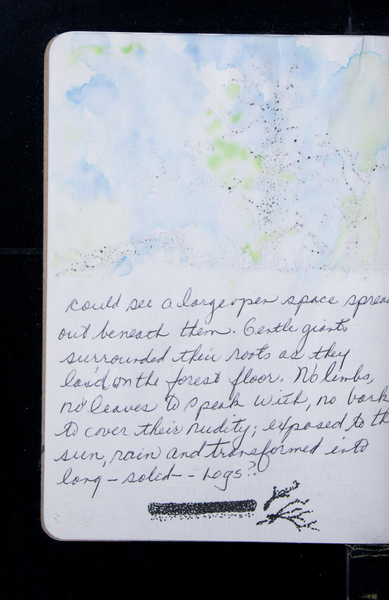 could see a large open space spread
out beneath them. Gentle giants
surrounded their roots as they
laid on the forest floor. No limbs,
no leaves to speak with, no bark
to cover their nudity; exposed to th
sun, rain and transformed into
long - solid - Logs?.